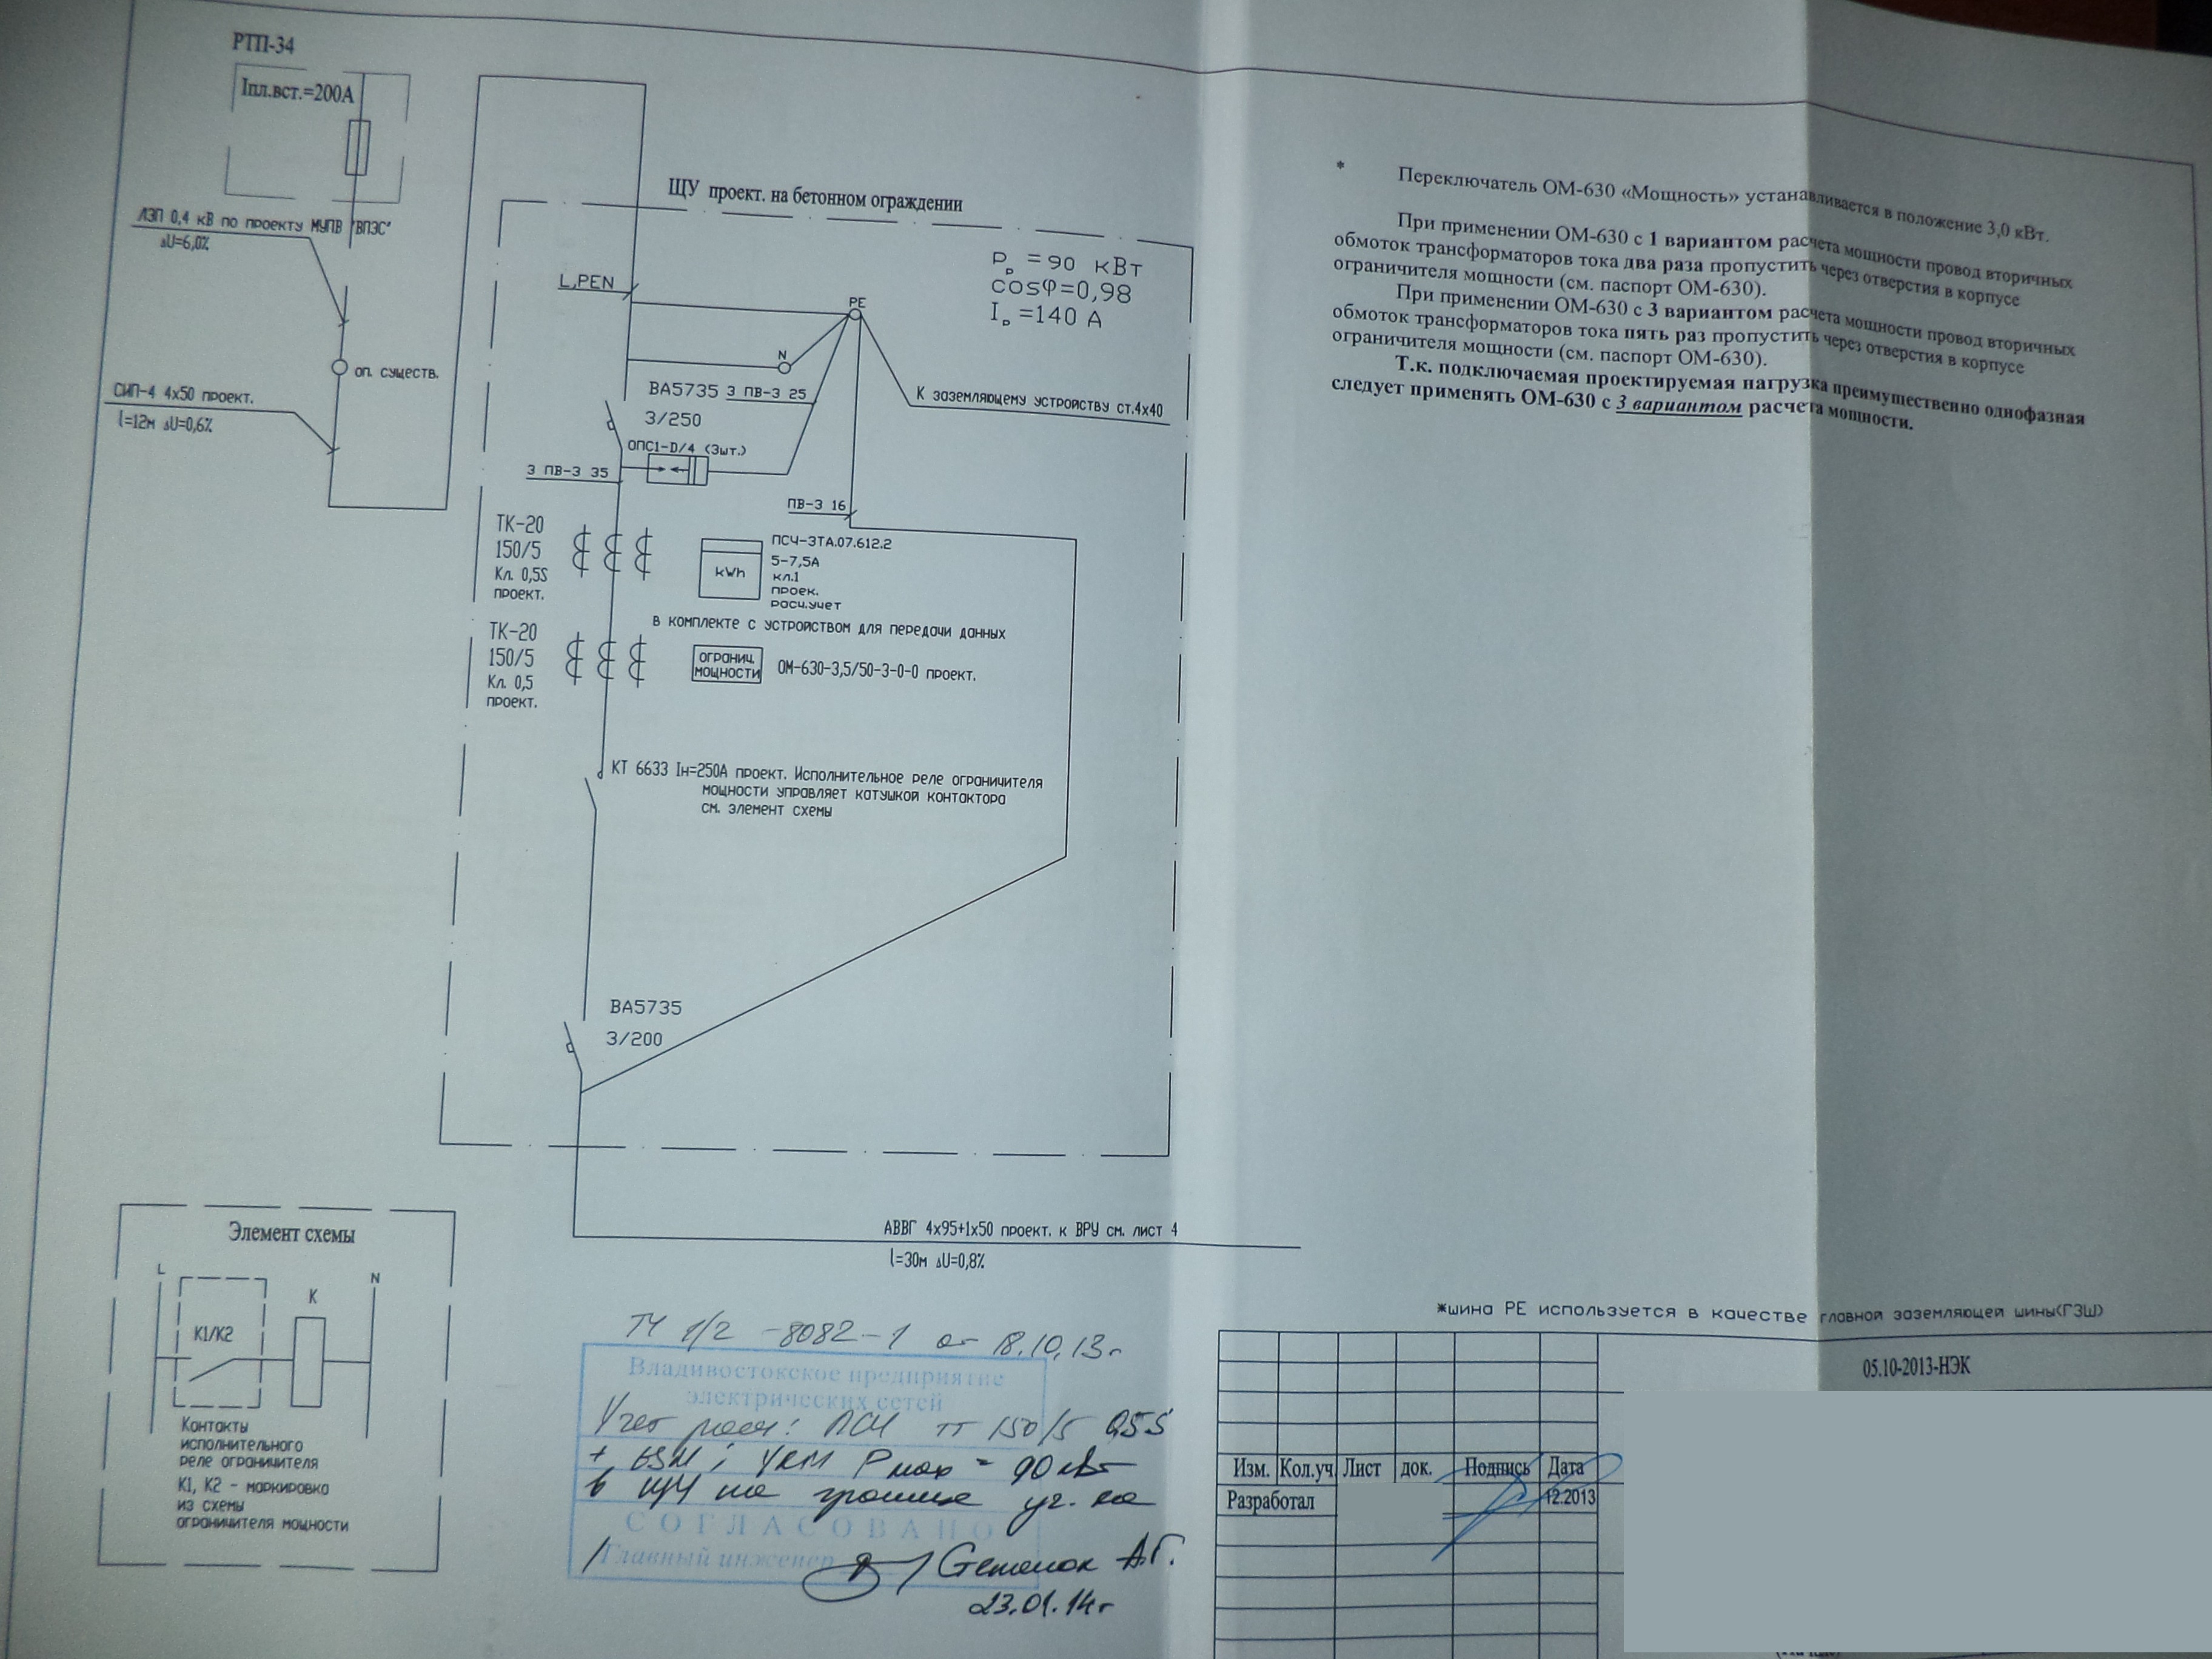 РТП-34
Iпл.вст.=200А
ЛЭП 0,4 кВ по проекту МУПВ "ВПЭС"
ΔU=6,0%
оп. существ.
СИП-4 4х50 проект.
l=12м ΔU=0,6%
ЩУ проект. на бетонном ограждении
Рр = 90 кВт
cosφ=0,98
Iр =140 А
L,PEN
PE
N
ВА5735
3/250
3 ПВ-3 25
К заземляющему устройству ст.4х40
ОПС1-D/4 (3шт.)
3 ПВ-3 35
ПВ-3 16
ТК-20
150/5
Кл. 0,5S
проект.
kWh
ПСЧ-3ТА.07.612.2
5-7,5А
кл.1
проек.
расч.учет
в комплекте с устройством для передачи данных
ТК-20
150/5
Кл. 0,5
проект.
огранич.
мощности
ОМ-630-3,5/50-3-0-0 проект.
КТ 6633 Iн=250А проект. Исполнительное реле ограничителя
мощности управляет катушкой контактора
см. элемент схемы
ВА5735
3/200
АВВГ 4х95+1х50 проект. к ВРУ см. лист 4
l=30м ΔU=0,8%
Элемент схемы
L
K
N
К1/К2
Контакты
исполнительного
реле ограничителя
К1, К2 - маркировка
из схемы
ограничителя мощности
* Переключатель ОМ-630 «Мощность» устанавливается в положение 3,0 кВт.
При применении ОМ-630 с 1 вариантом расчета мощности провод вторичных
обмоток трансформаторов тока два раза пропустить через отверстия в корпусе
ограничителя мощности (см. паспорт ОМ-630).
При применении ОМ-630 с 3 вариантом расчета мощности провод вторичных
обмоток трансформаторов тока пять раз пропустить через отверстия в корпусе
ограничителя мощности (см. паспорт ОМ-630).
Т.к. подключаемая проектируемая нагрузка преимущественно однофазная
следует применять ОМ-630 с 3 вариантом расчета мощности.
ТУ 1/2 -8082-1 от 18.10.13г
Владивостокское предприятие
электрических сетей
Учет расч: ПСЧ тт 150/5 0,5S
Рмах = 90 кВт
в ЩУ на границе уч-ка
СОГЛАСОВАНО
Главный инженер
А.Г.
23.01.14г
*шина РЕ используется в качестве главной заземляющей шины(ГЗШ)
05.10-2013-НЭК
Изм. Кол.уч. Лист док. Подпись Дата
Разработал 12.2013